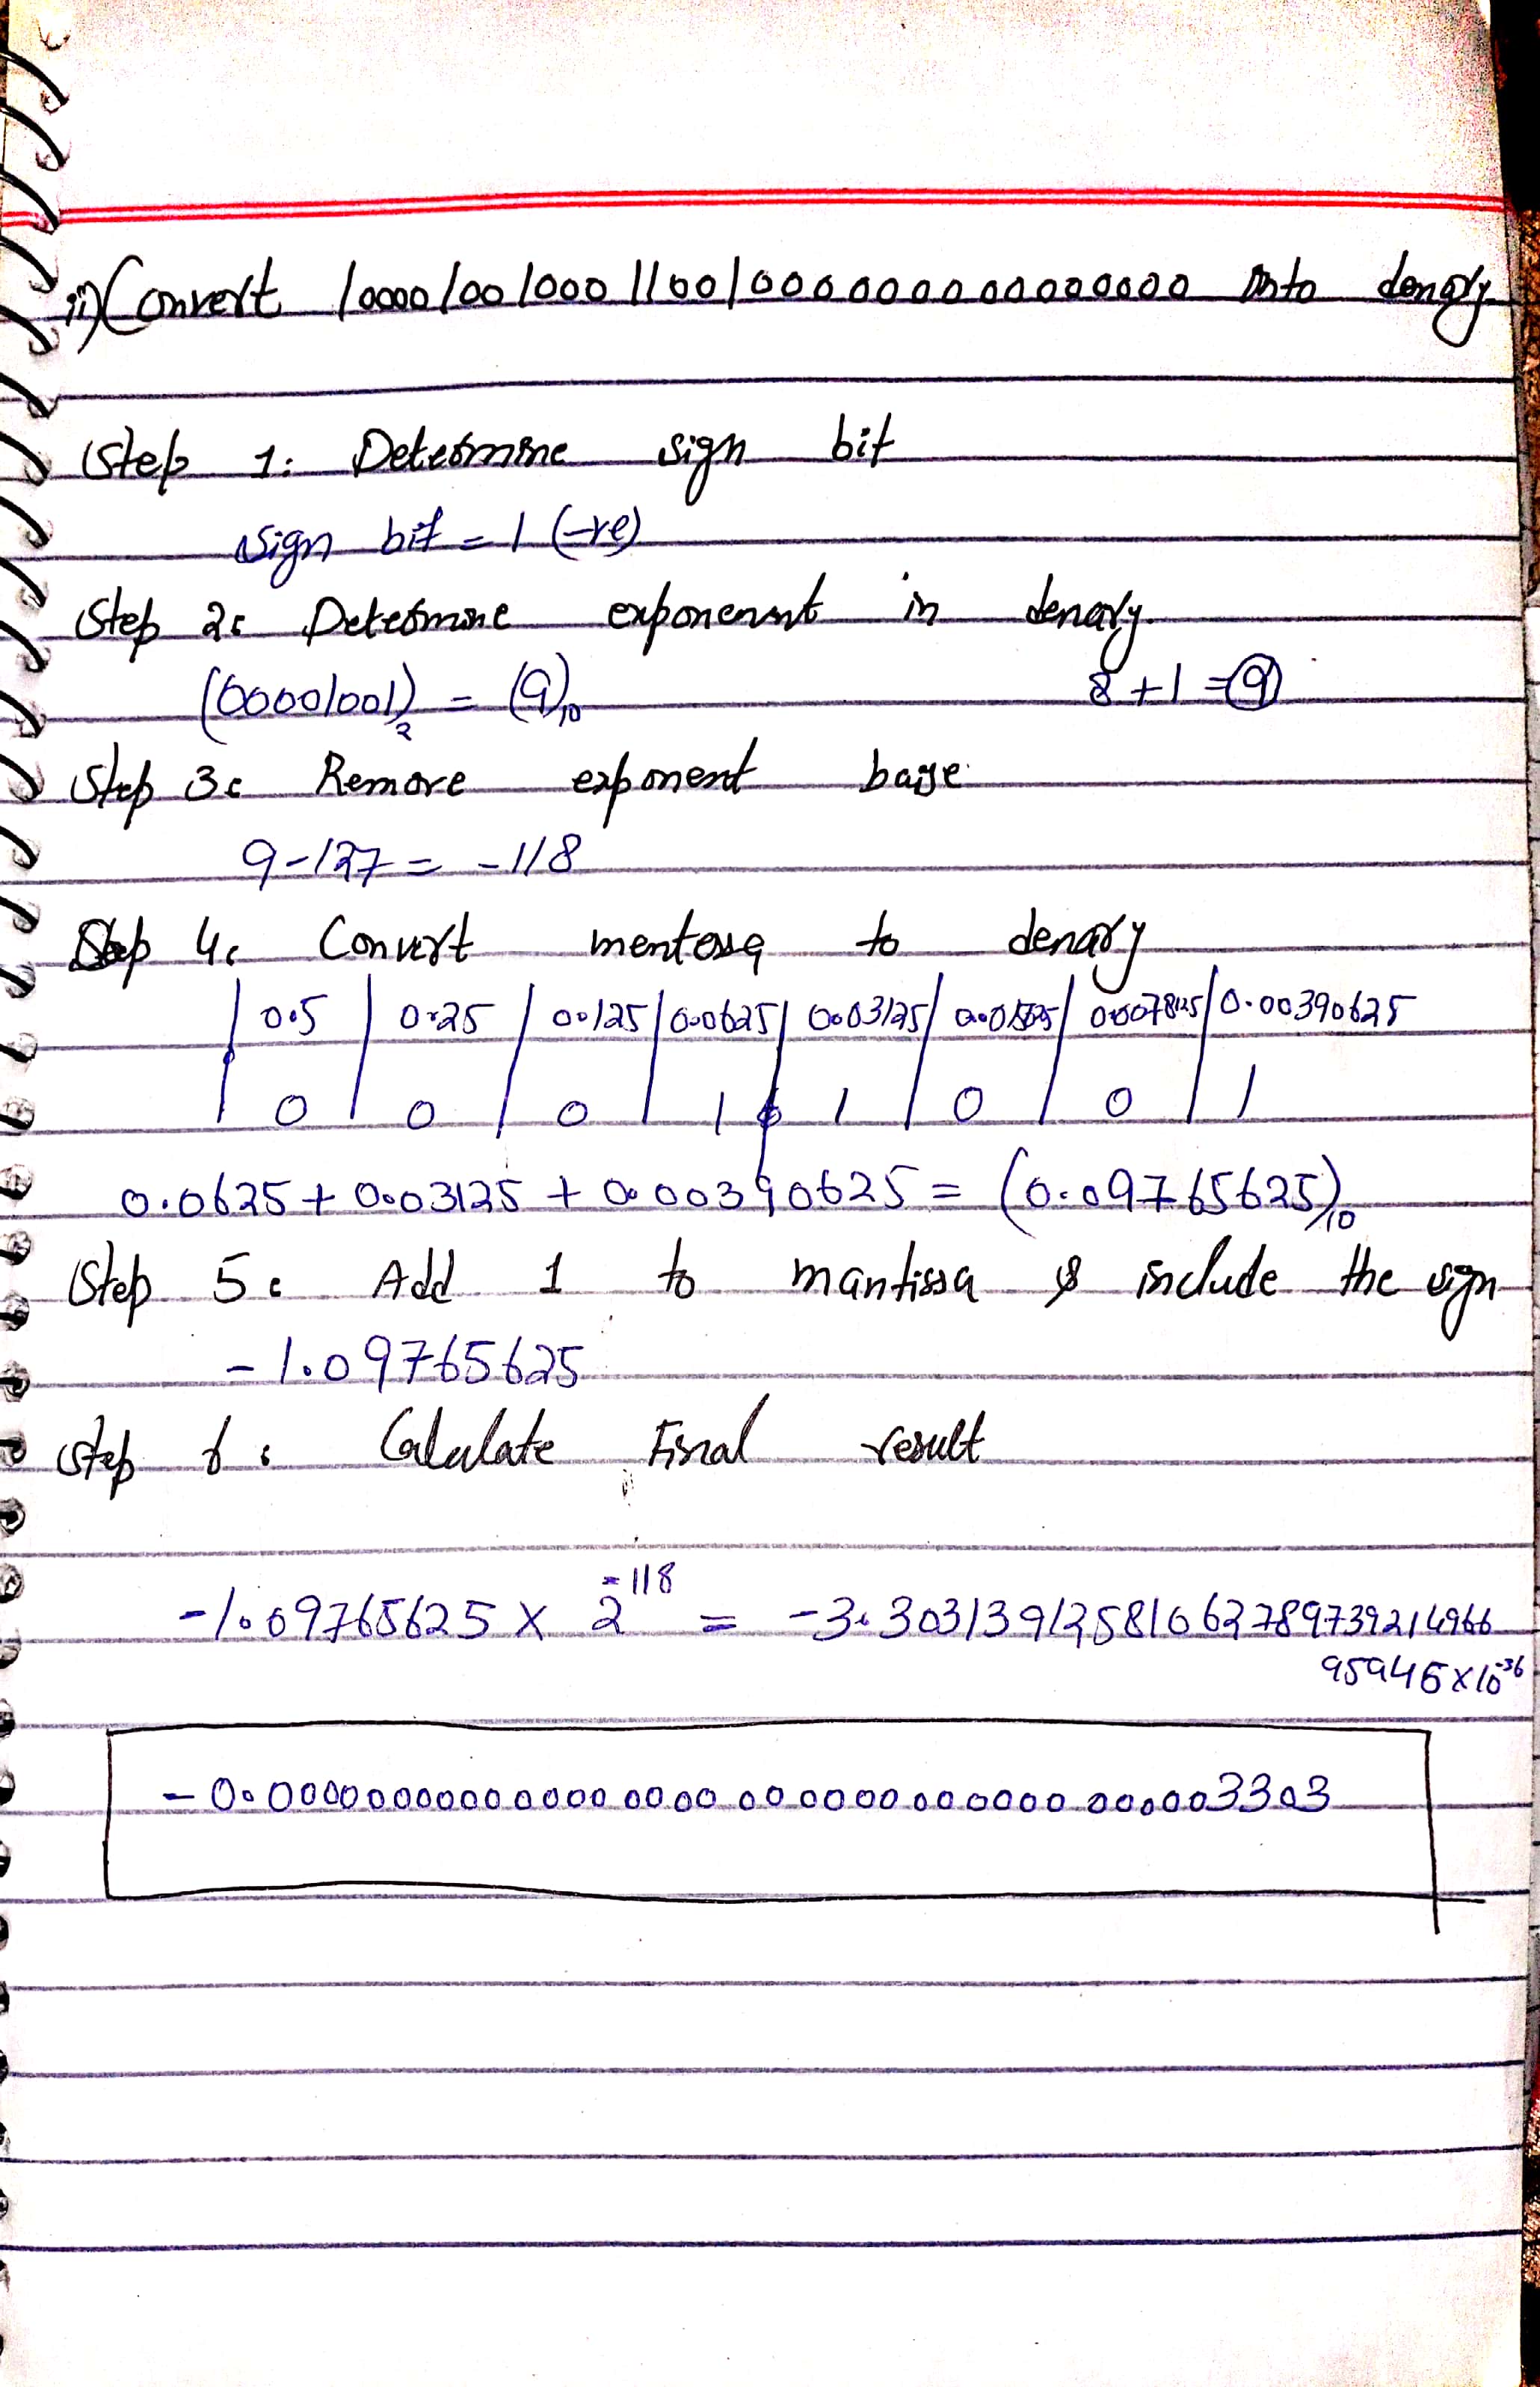 ii) Convert 10000100100011001000000000000000 into denary
Step 1: Determine sign bit
Sign bit = 1 (-ve)
Step 2: Determine exponennt in denary
(00001001)₂ = (9)₁₀ 8+1=9
Step 3: Remove exponent baise
9-127 = -118
Step 4: Convert mentossa to denary
0.5 | 0.25 | 0.125 | 0.0625 | 0.03125 | 0.015625 | 0.0078125 | 0.00390625
0 | 0 | 0 | 1 | 1 | 0 | 0 | 1
0.0625 + 0.03125 + 0.00390625 = (0.09765625)₁₀
Step 5: Add 1 to mantissa & include the sign
-1.09765625
Step 6: Calculate Final result
-1.09765625 × 2⁻¹¹⁸ = -3.30313912581062789739214966
95945×10⁻³⁶
-0.000000000000000000000000000000000003303